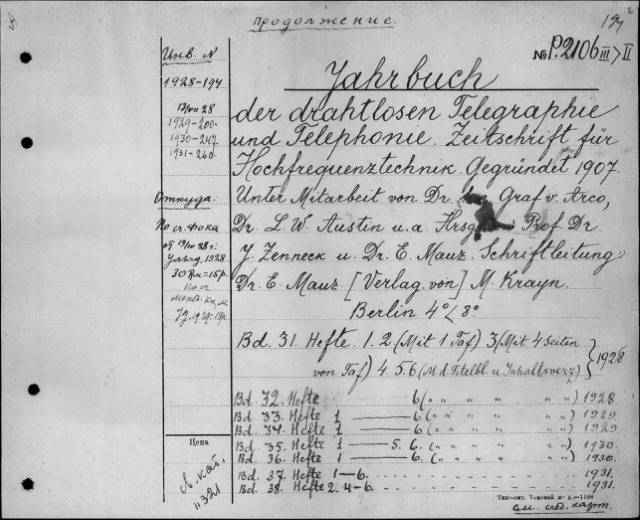 продолжение.
194
№ P.2106 III > II
Инв. N
1928-194
1929-200.
1930-247.
1931-260.
Откуда.
По сч. Фока
30 Rm = 15р.
По сч.
Jahrbuch
der drahtlosen Telegraphie
und Telephonie. Zeitschrift für
Hochfrequenztechnik. Gegründet 1907.
Unter Mitarbeit von Dr. Graf v. Arco,
Dr. L. W. Austin u. a Hrsg Prof Dr
J. Zenneck u. Dr. E. Mauz. Schriftleitung
Dr. E. Mauz [Verlag von] M. Krayn.
Berlin 4° < 8°
Bd. 31. Hefte. 1. 2. (Mit 1 Taf) 3 (Mit 4 Seiten
von Taf) 4. 5. 6 (M. d. Titelbl u. Inhaltsverz) } 1928
Bd. 32. Hefte 6 („ „ „ „ „) 1928.
Bd. 33. Hefte 1 — 6 („ „ „ „ „) 1929.
Bd. 34. Hefte 1 — 6 („ „ „ „ „) 1929.
Bd. 35. Hefte 1 — 5. 6. („ „ „ „ „) 1930.
Bd. 36. Hefte 1 — 6. („ „ „ „ „) 1930.
Bd. 37. Hefte 1 — 6. 1931.
Bd. 38. Hefte 2. 4-6. 1931.
Цена
Л. кат.
11321
см. след. карт.